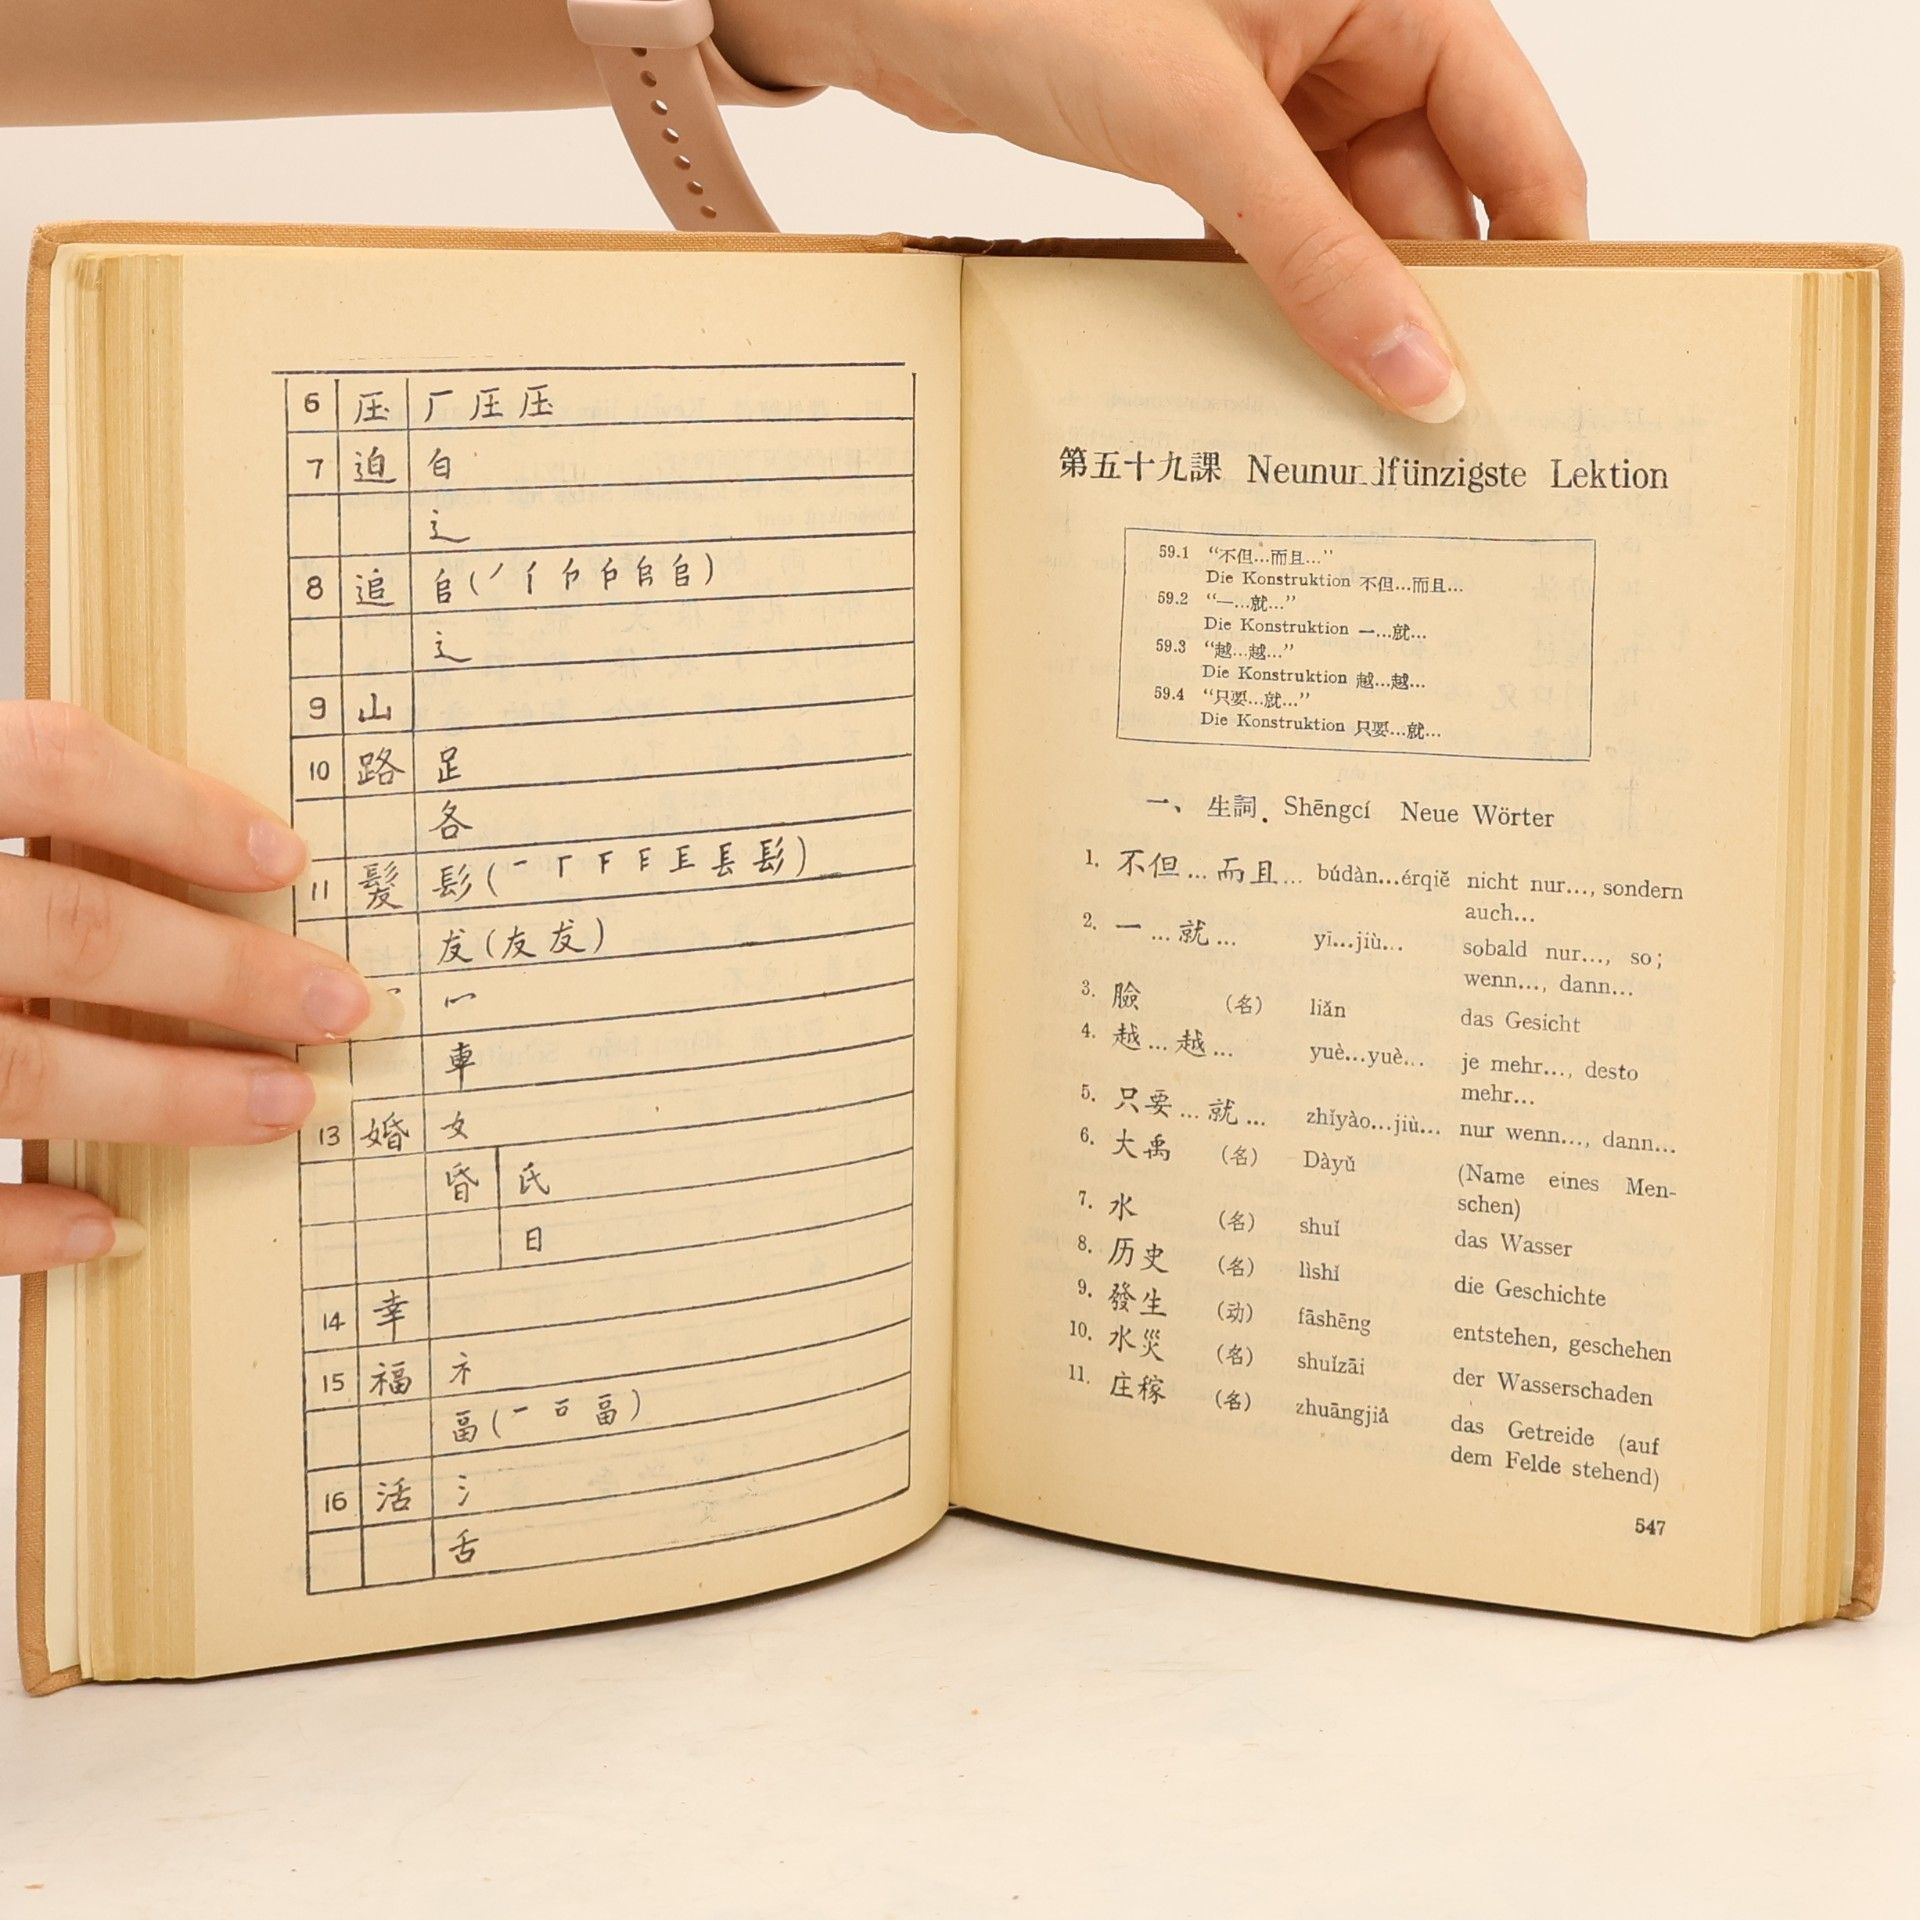 6 压 厂 圧 压
7 迫 白
辶
8 追 𠂤(㇒ 亻 㠯 𠂤)
辶
9 山
10 路 足
各
11 髮 髟(一 厂 F E 镸 髟)
犮(友 犮)
冖
車
13 婚 女
昏 氏
日
14 幸
15 福 礻
畐(一 畐)
16 活 氵
舌
第五十九課 Neunundfünzigste Lektion
59.1 “不但…而且…”
Die Konstruktion 不但…而且…
59.2 “一…就…”
Die Konstruktion 一…就…
59.3 “越…越…”
Die Konstruktion 越…越…
59.4 “只要…就…”
Die Konstruktion 只要…就…
一、 生詞. Shēngcí Neue Wörter
1. 不但…而且… búdàn…érqiě nicht nur…, sondern
auch…
2. 一…就… yī…jiù… sobald nur…, so;
wenn…, dann…
3. 臉 (名) liǎn das Gesicht
4. 越…越… yuè…yuè… je mehr…, desto
mehr…
5. 只要…就… zhǐyào…jiù… nur wenn…, dann…
6. 大禹 (名) Dàyǔ (Name eines Men-
schen)
7. 水 (名) shuǐ das Wasser
8. 历史 (名) lìshǐ die Geschichte
9. 發生 (动) fāshēng entstehen, geschehen
10. 水災 (名) shuǐzāi der Wasserschaden
11. 庄稼 (名) zhuāngjià das Getreide (auf
dem Felde stehend)
547